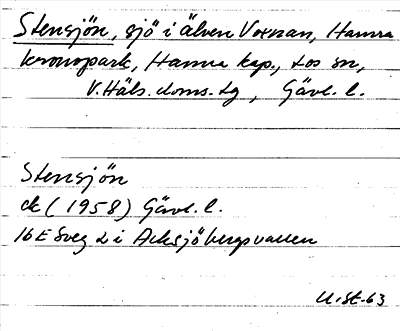 Stensjön, sjö i älven Voxnan, Hamra
kronopark, Hamra kap., Los sn,
V. Häls. doms. lg, Gävl. l.
Stensjön
ek (1958) Gävl. l.
16 E Sveg 2 i Acksjöbergsvallen
U. St. 63